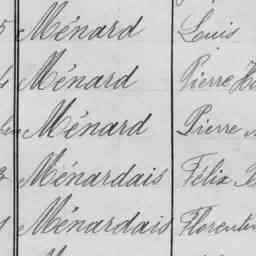 5 Ménard Luis
Ménard Pierre
Ménard Pierre
3 Ménardais Félix
Ménardais Florentin